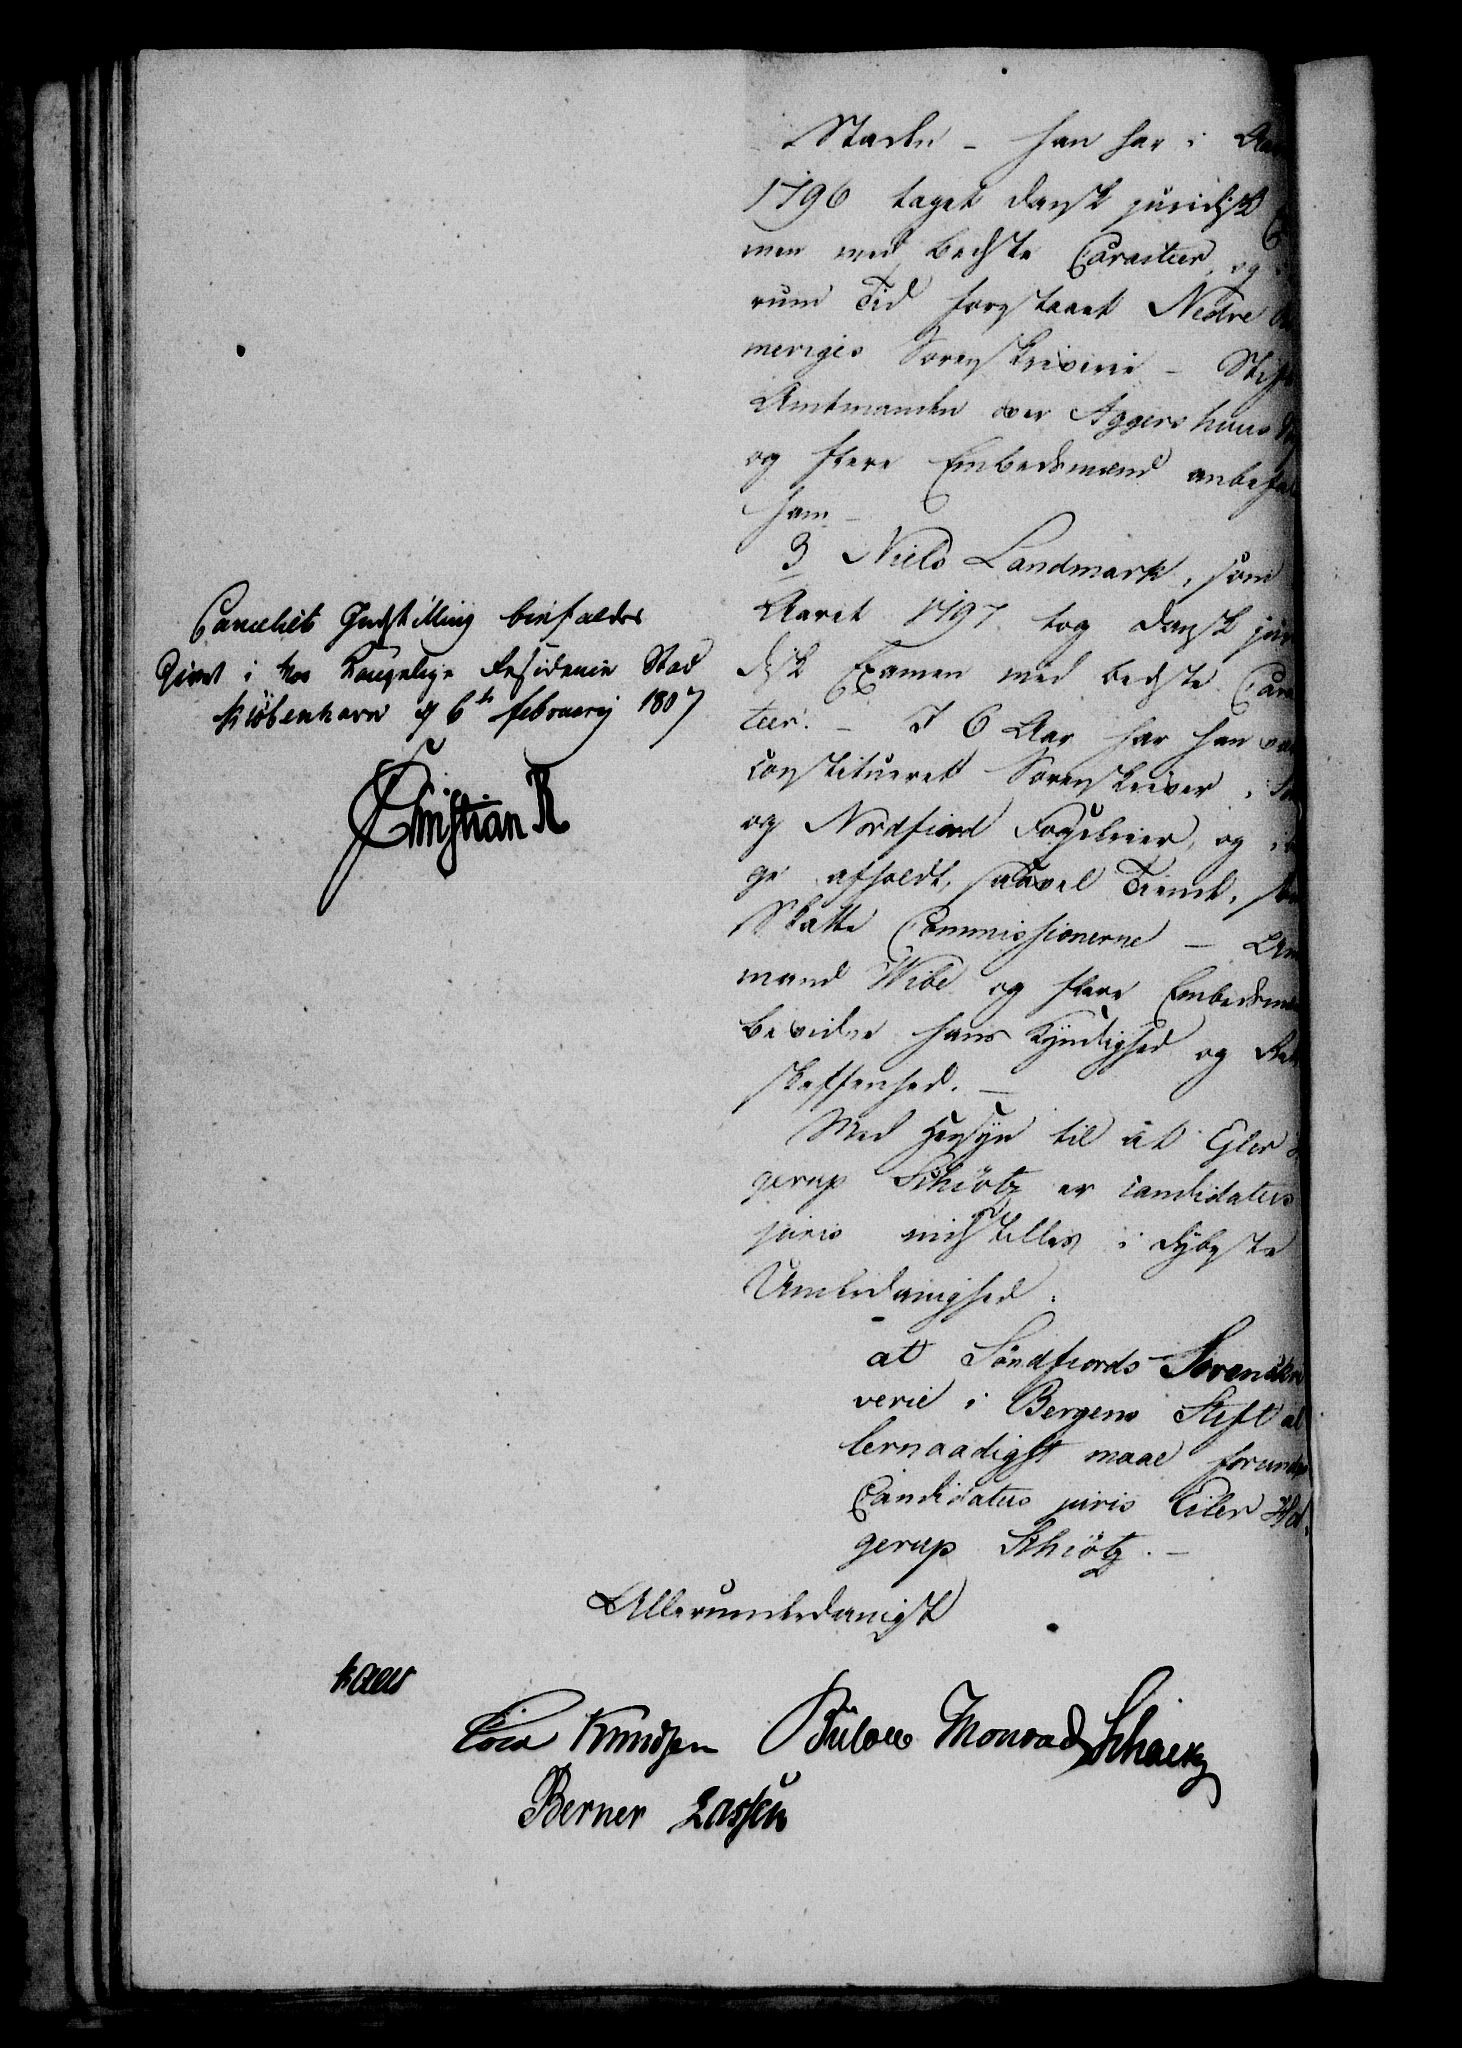 Staden - han har i Aar
1796 taget dansk juridisk
men med beste Caracteer, og
rum Tid forestaaet Nedre
meriges Sorenskriverie - Stift
Amtmanden over Aggershuus
og flere Embedsmænd anbefal
ham -
3 Niels Landmark, som
Aaret 1797 tog dansk juri
disk Examen med bedste Carac
teer. - I 6 Aar har han
constitueret Sorenskriver i
og Nordfiord Fogderier, og
ge afholdt, saavel Tiende, som
Skatte Commissionerne - Amt
mand Wibe og flere Embedsmæn
bevidne hans Kyndighed og Ret
skaffenhed. -
Med Hensyn til at Eiler
gerup Schiötz er candidatus
juris indstilles i dybeste
Underdanighed:
at Söndfiords Sorenskri
verie i Bergens Stift al
lernaadigst maae forundes
Candidatus juris Eiler Ha
gerup Schiötz. -
Allerunderdanigst
Cancelliets Indstilling bifaldes
Givet i vor Kongelige Residence Stad
Kiöbenhavn d 6te februarij 1807
Christian R
Kaas
Cold Knudsen Bülow Monrad
Berner Lassen